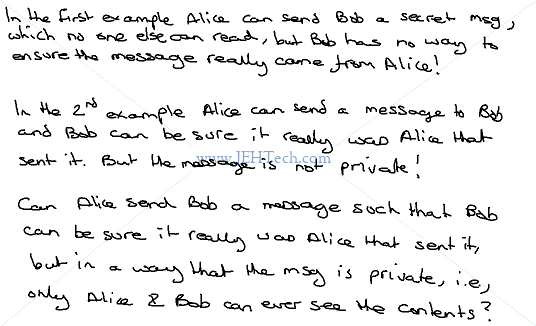 In the first example Alice can send Bob a secret msg,
which no one else can read, but Bob has no way to
ensure the message really came from Alice!
In the 2nd example Alice can send a message to Bob
and Bob can be sure it really was Alice that
sent it. But the message is not private!
www.JEHTech.com
Can Alice send Bob a message such that Bob
can be sure it really was Alice that sent it,
but in a way that the msg is private, i.e.,
only Alice & Bob can ever see the contents?